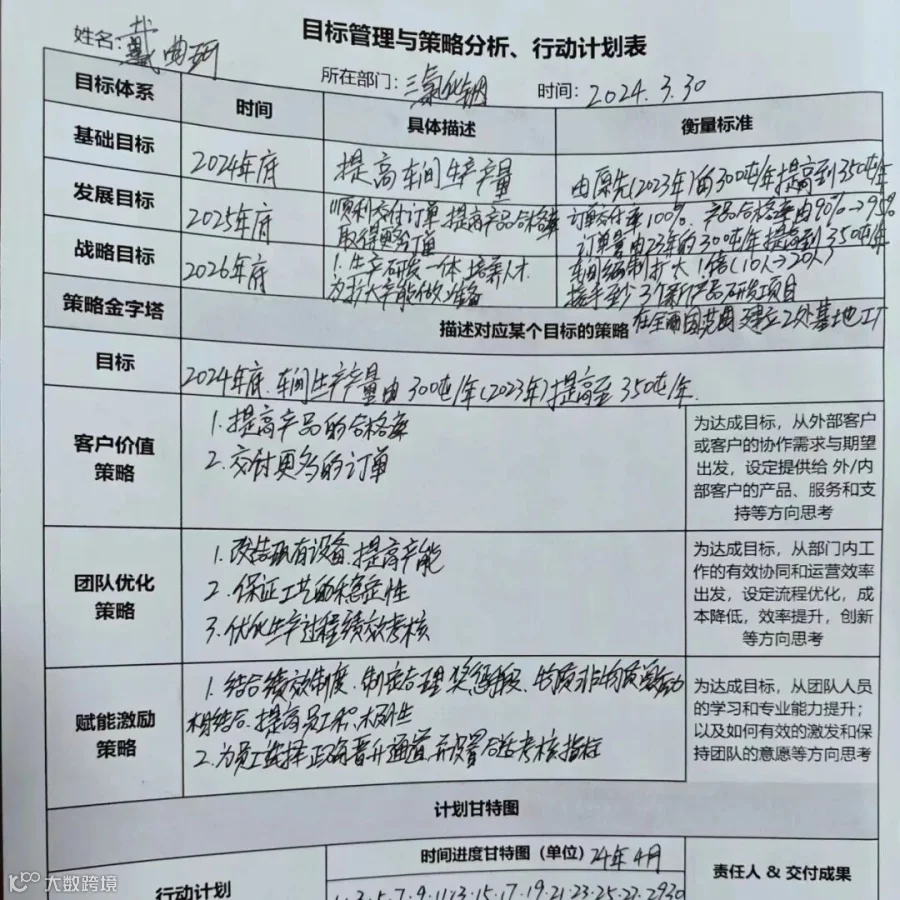 目标管理与策略分析、行动计划表
姓名：戴曲珂 所在部门：三氯化钠 时间：2024.3.30
目标体系 时间 具体描述 衡量标准
基础目标 2024年底 提高车间生产产量 由原先(2023年)的300吨/年提高到350吨/年
发展目标 2025年底 顺利交付订单,提高产品合格率 订单交付率100%.产品合格率由90%→95%
取得更多订单 订单量由23年的300吨/年提高到350吨/年
战略目标 2026年底 1.生产研发一体,培养人才. 车间编制扩大1倍(10人→20人)
为扩大产能做准备 接手至少3个新产品研发项目
在全国范围建立2处基地工厂
策略金字塔 描述对应某个目标的策略
目标 2024年底.车间生产产量由300吨/年(2023年)提高至350吨/年.
客户价值策略
1.提高产品的合格率
2.交付更多的订单
为达成目标，从外部客户
或客户的协作需求与期望
出发，设定提供给 外/内
部客户的产品、服务和支
持等方向思考
团队优化策略
1.改造现有设备.提高产能
2.保证工艺的稳定性
3.优化生产过程绩效考核
为达成目标，从部门内工
作的有效协同和运营效率
出发，设定流程优化，成
本降低，效率提升，创新
等方向思考
赋能激励策略
1.结合绩效制度.制定合理奖惩制度、物质非物质激励
相结合.提高员工积极性
2.为员工选择正确晋升通道,并设置合适考核指标
为达成目标，从团队人员
的学习和专业能力提升；
以及如何有效的激发和保
持团队的意愿等方向思考
计划甘特图
行动计划 时间进度甘特图（单位）24年4月 责任人 & 交付成果
1·3·5·7·9·11·13·15·17·19·21·23·25·27·29 30
大数跨境